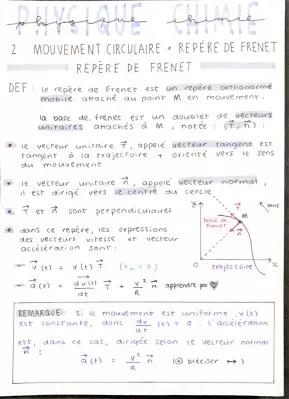 PHYSIQUE CHIMIE
physique chimie
2. MOUVEMENT CIRCULAIRE + REPÈRE DE FRENET
REPÈRE DE FRENET
DEF : le repère de Frenet est un repère orthonormé
mobile attaché au point M en mouvement.
la base de frenet est un doublet de vecteurs
unitaires attachés à M, notée : (T⃗, n⃗) :
* le vecteur unitaire T⃗, appelé vecteur tangent est
tangent à la trajectoire + orienté vers le sens
du mouvement
* le vecteur unitaire n⃗, appelé vecteur normal,
il est dirigé vers le centre du cercle
* T⃗ et n⃗ sont perpendiculaires
* dans ce repère, les expressions
des vecteurs vitesse et vecteur
accélération sont :
→ v⃗(t) = v(t) T⃗
→ a⃗(t) = dv(t)/dt T⃗ + v²/R n⃗ apprendre par ♥
sens
M
Frenet
trajectoire
REMARQUE : si le mouvement est uniforme, v(t)
est constante, donc dv/dt (t) = 0. l'accélération
est, dans ce cas, dirigée selon le vecteur normal
n⃗ :
a⃗(t) = v²/R n⃗ (préciser ↦)